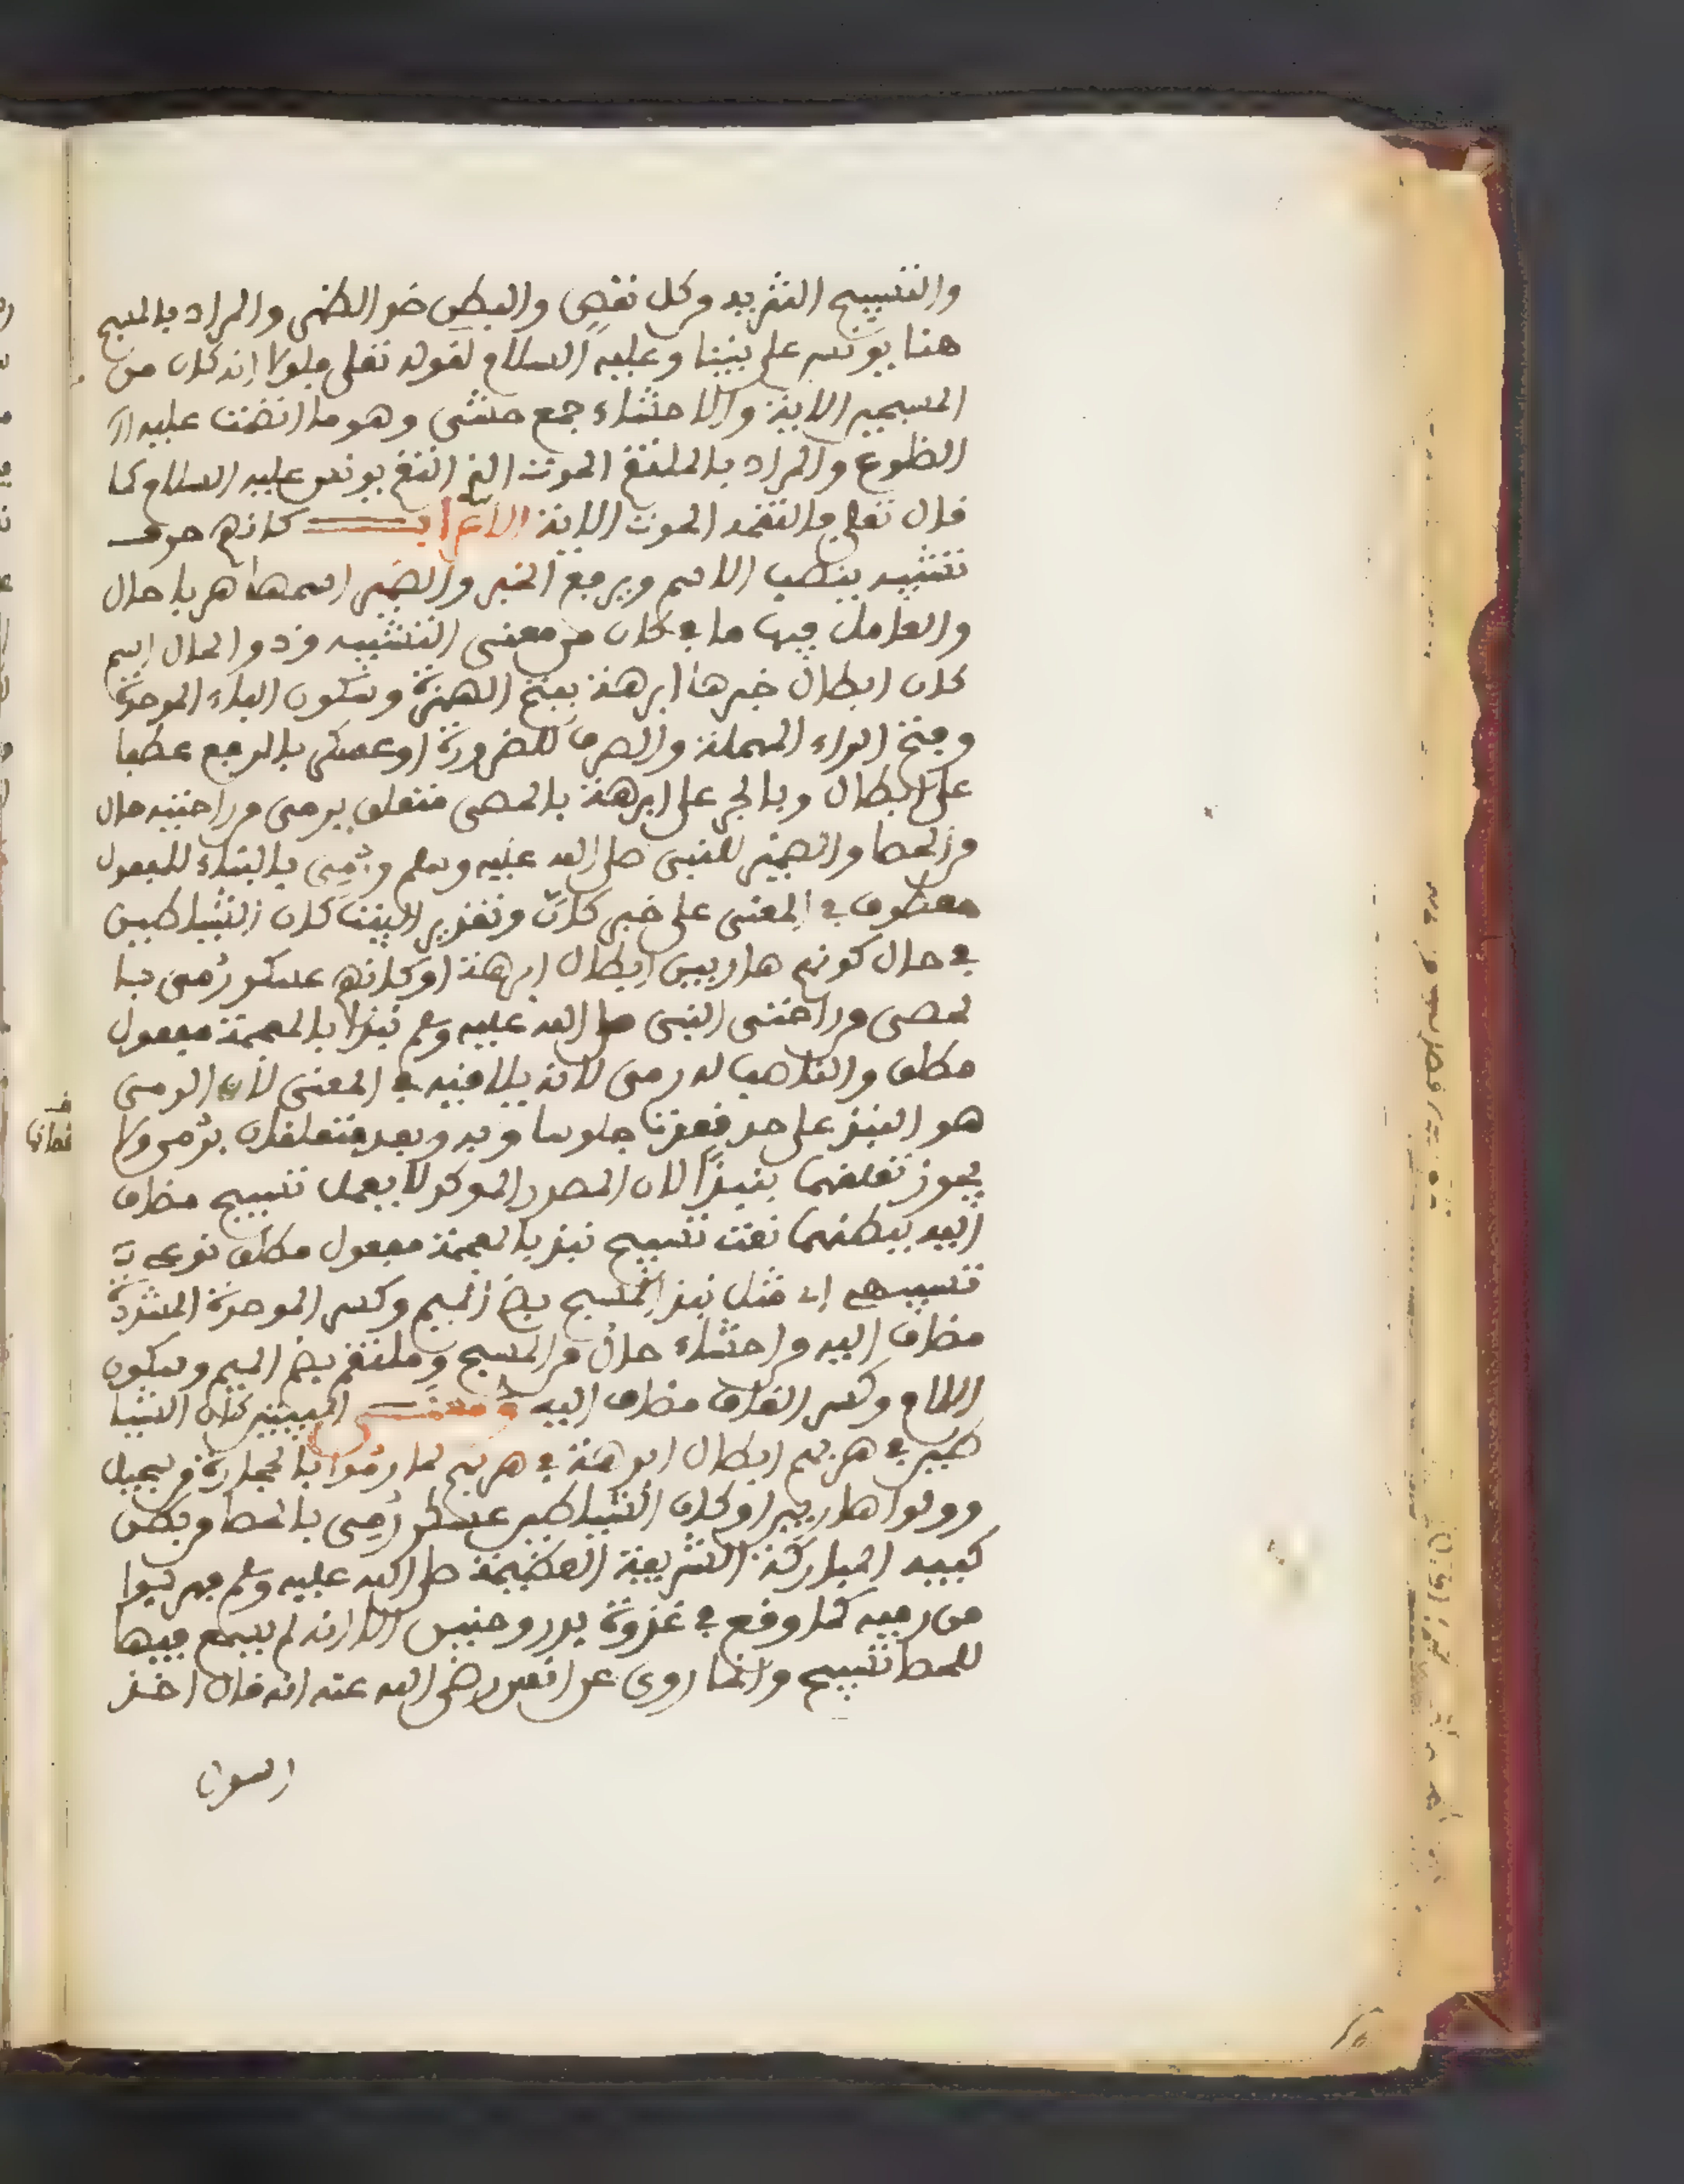 والتسبيح التنزيه من كل نقص والبطن ضد الظهر والمراد بالمسبح
هنا يونس على نبينا وعليه السلام لقوله تعلى فلولا انه كان من
المسبحين الاية والاحشاء جمع حشى وهو ما انضمت عليه ال
الضلوع والمراد بالملتقم الحوت الذي التقم يونس عليه السلام كما
قال تعلى فالتقمه الحوت الاية الاعراب كانهم حرف
تشبيه ينصب الاسم ويرفع الخبر والضمير اسمها هربا حال
والعامل فيها ما في كان من معنى التشبيه وذو الحال اسم
كان ابطال خبرها ابرهة بفتح الهمزة وسكون الباء الموحدة
وفتح الراء المهملة والصرف للضرورة او عسكر بالرفع عطفا
على ابطال وبالجر على ابرهة بالحصى متعلق برمى من راحتيه حال
من الحصا والضمير للنبي صلى الله عليه وسلم ورُمِي بالبناء للمفعول
معطوف في المعنى على خبر كان وتقدير البيت كان الشياطين
في حال كونهم هاربين ابطال ابرهة او كانهم عسكر رُمي با
لحصى من راحتي النبي صلى الله عليه وسلم نبذا بالمعجمة مفعول
مطلق والناصب له رمى لانه يلاقيه في المعنى لان الرمي
هو النبذ على حد قعدت جلوسا وبه وبعد متعلقان برُمي ولا
يجوز تعلقهما بنبذًا لان المصدر الموكد لا يعمل تسبيح مضاف
اليه ببطنهما نعت تسبيح نبذ بالمعجمة مفعول مطلق نوعي
تشبيهي اي مثل نبذ المسبح بضم الميم وكسر الموحدة المشددة
مضاف اليه من احشاء حال من المسبح وملتقم بضم الميم وسكون
اللام وكسر القاف مضاف اليه ومعنى البيتين كان الشيا
طين في هربهم ابطال ابرهة في هربهم لما رُمُوا بالحجارة من سجيل
وولوا هاربين او كان الشياطين عسكر رُمِي بالحصا من بطن
كفيه المباركة الشريفة العظيمة صلى الله عليه وسلم فهربوا
من رميه كما وقع في غزوة بدر وحنين الا انه لم يسمع فيها
للحصا تسبيح وانما روي عن انس رضي الله عنه انه قال اخذ
رسول